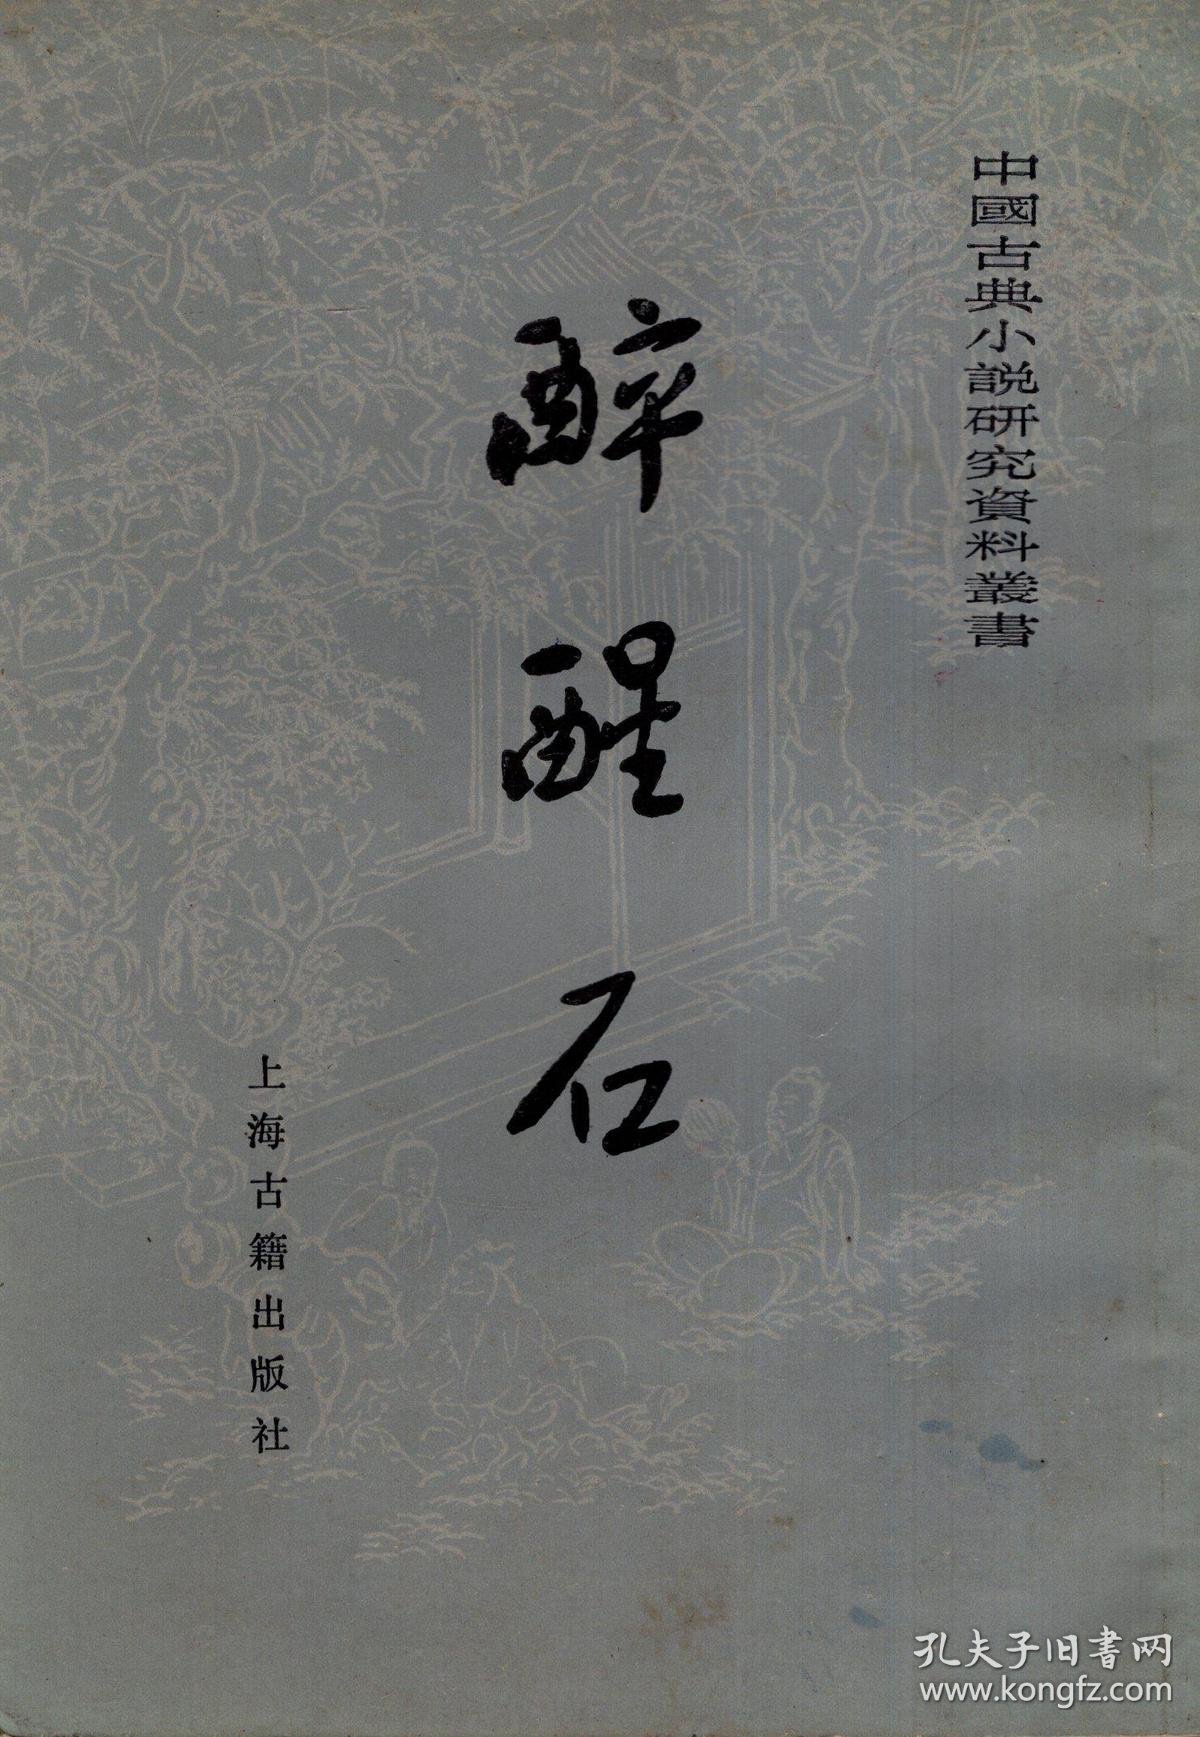 中國古典小説研究資料叢書
醉醒石
上海古籍出版社
孔夫子旧書网
www.kongfz.com